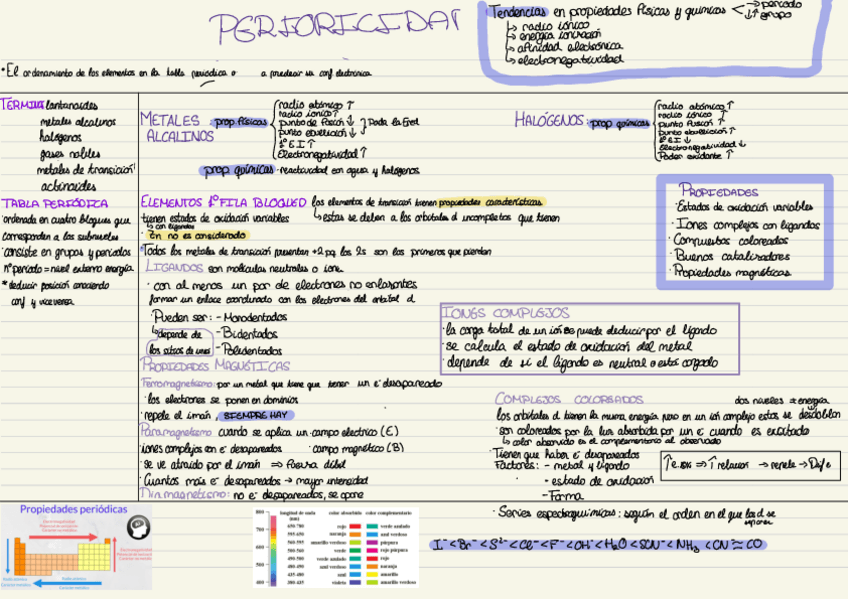 PERIORICIDAD
Tendencias en propiedades físicas y químicas < → periodo
↓↑ grupo
↳ radio iónico
↳ energía ionización
↳ afinidad electrónica
↳ electronegatividad
• El ordenamiento de los elementos en la tabla periodica a predecir su conf electronica
TERMINO lantanoides
metales alcalinos
halógenos
gases nobles
metales de transición
actinoides
METALES ALCALINOS prop físicas
radio atómico ↑
radio iónico ↑
punto de fusión ↓
punto ebullición ↓
1º E.I ↑
Electronegatividad ↑
prop químicas · reactividad con agua y halogenos
HALÓGENOS: prop químicas
radio atómico ↑
radio iónico ↑
punto fusión ↑
punto ebullición ↑
1º E.I ↓
Electronegatividad ↓
Poder oxidante ↑
TABLA PERIÓDICA
· ordenada en cuatro bloques que
corresponden a los subniveles
· consiste en grupos y periodos
nº periodo = nivel externo energía
* deducir posición conociendo
conf y viceversa
ELEMENTOS 1ª FILA BLOQUE D los elementos de transición tienen propiedades características
tienen estados de oxidación variables ↳ estas se deben a los orbitales d incompletos que tienen
↳ con ligandos
· Zn no es considerado
* Todos los metales de transición presentan +2 pq los 2s son los primeros que pierden
LIGANDOS son moléculas neutrales o iones
· con al menos un par de electrones no enlazantes
formar un enlace coordinado con los electrones del orbital d
· Pueden ser: - Monodentados
↳ depende de - Bidentados
los sitios de unión - Polidentados
PROPIEDADES
· Estados de oxidación variables
· Iones complejos con ligandos
· Compuestos coloreados
· Buenos catalizadores
· Propiedades magnéticas
IONES COMPLEJOS
· la carga total de un ión se puede deducir por el ligando
· se calcula el estado de oxidación del metal
· depende de si el ligando es neutral o está cargado
PROPIEDADES MAGNÉTICAS
Ferromagnetismo: por un metal que tiene que tener un e⁻ desapareado
· los electrones se ponen en dominios
· repele el imán, SIEMPRE HAY
Paramagnetismo cuando se aplica un campo electrico (E)
iones complejos con e⁻ desapareados · campo magnético (B)
· se ve atraido por el imán ⇒ Fuerza débil
· Cuantos más e⁻ desapareados → mayor intensidad
Diamagnetismo: no e⁻ desapareados, se opone
COMPLEJOS COLOREADOS dos niveles ≠ energía
los orbitales d tienen la misma energía pero en un ión complejo estos se desdoblan
· son coloreados por la luz absorbida por un e⁻ cuando es excitado
↳ color absorvido es el complementario al observado
· Tienen que haber e⁻ desapareados
Factores: - metal y ligando
- estado de oxidación
- Forma
· Series espectroquímicas: según el orden en el que la d se
I⁻ < Br⁻ < S²⁻ < Cl⁻ < F⁻ < OH⁻ < H₂O < SCN⁻ < NH₃ < CN⁻ ≈ CO
Propiedades periódicas
longitud de onda (nm) color absorbido color complementario
800
700
600
500
400
650-780 rojo verde azulado
595-650 naranja azul verdoso
560-595 amarillo verdoso púrpura
500-560 verde rojo púrpura
490-500 verde azulado rojo
480-490 azul verdoso naranja
435-480 azul amarillo
380-435 violeta amarillo verdoso